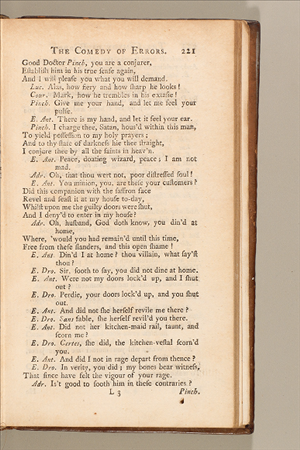 THE COMEDY OF ERRORS. 221
Good Doctor Pinch, you are a conjurer,
Establish him in his true sense again,
And I will please you what you will demand.
Luc. Alas, how fiery and how sharp he looks!
Cour. Mark, how he trembles in his extasie!
Pinch. Give me your hand, and let me feel your
pulse.
E. Ant. There is my hand, and let it feel your ear.
Pinch. I charge thee, Satan, hous'd within this man,
To yield possession to my holy prayers;
And to thy state of darkness hie thee straight,
I conjure thee by all the saints in heav'n.
E. Ant. Peace, doating wizard, peace; I am not
mad.
Adr. Oh, that thou wert not, poor distressed soul!
E. Ant. You minion, you, are these your customers?
Did this companion with the saffron face
Revel and feast it at my house to-day,
Whilst upon me the guilty doors were shut,
And I deny'd to enter in my house?
Adr. Oh, husband, God doth know, you din'd at
home,
Where, 'would you had remain'd until this time,
Free from these slanders, and this open shame!
E. Ant. Din'd I at home? thou villain, what say'st
thou?
E. Dro. Sir, sooth to say, you did not dine at home.
E. Ant. Were not my doors lock'd up, and I shut
out?
E. Dro. Perdie, your doors lock'd up, and you shut
out.
E. Ant. And did not she herself revile me there?
E. Dro. Sans fable, she herself revil'd you there.
E. Ant. Did not her kitchen-maid rail, taunt, and
scorn me?
E. Dro. Certes, she did, the kitchen-vestal scorn'd
you.
E. Ant. And did I not in rage depart from thence?
E. Dro. In verity, you did; my bones bear witness,
That since have felt the vigour of your rage.
Adr. Is't good to sooth him in these contraries?
L 3 Pinch.